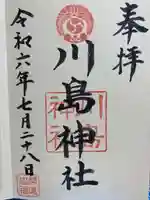 奉拝
川島神社
令和六年七月二十八日